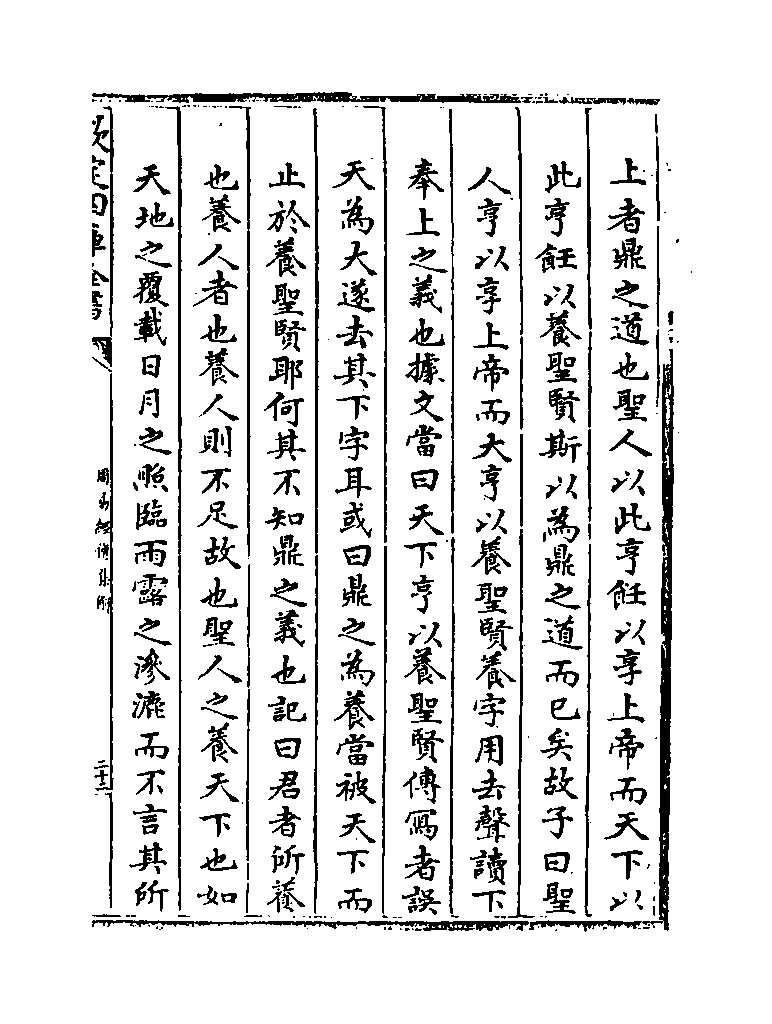 上者鼎之道也聖人以此亨飪以享上帝而天下以
此亨飪以養聖賢斯以為鼎之道而已矣故子曰聖
人亨以享上帝而大亨以養聖賢養字用去聲讀下
奉上之義也據文當曰天下亨以養聖賢傳寫者誤
天為大遂去其下字耳或曰鼎之為養當被天下而
止於養聖賢耶何其不知鼎之義也記曰君者所養
也養人者也養人則不足故也聖人之養天下也如
天地之覆載日月之照臨雨露之滲漉而不言其所
欽定四庫全書
周易經傳集解
二十三